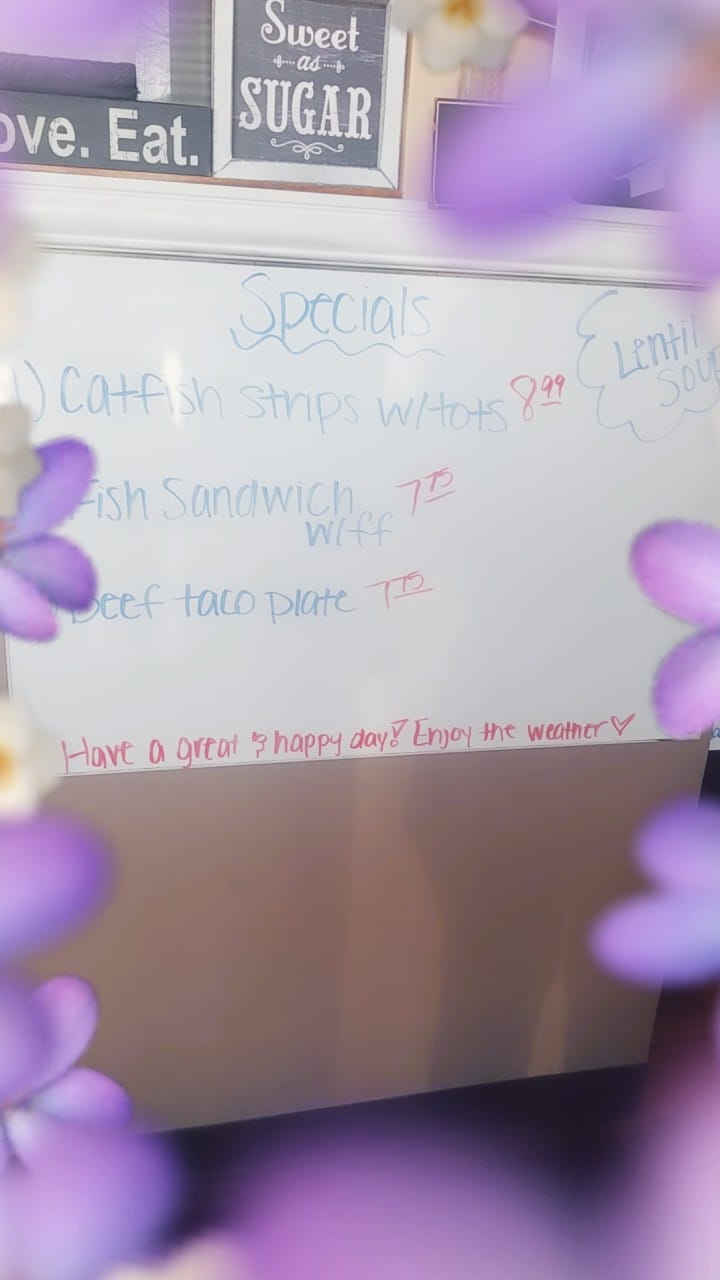 Sweet
as
SUGAR
ove. Eat.
Specials
Lentil
Soup
1) Catfish strips w/tots 8.99
Fish Sandwich 7.75
w/ff
Beef taco plate 7.75
Have a great & happy day! Enjoy the weather♡